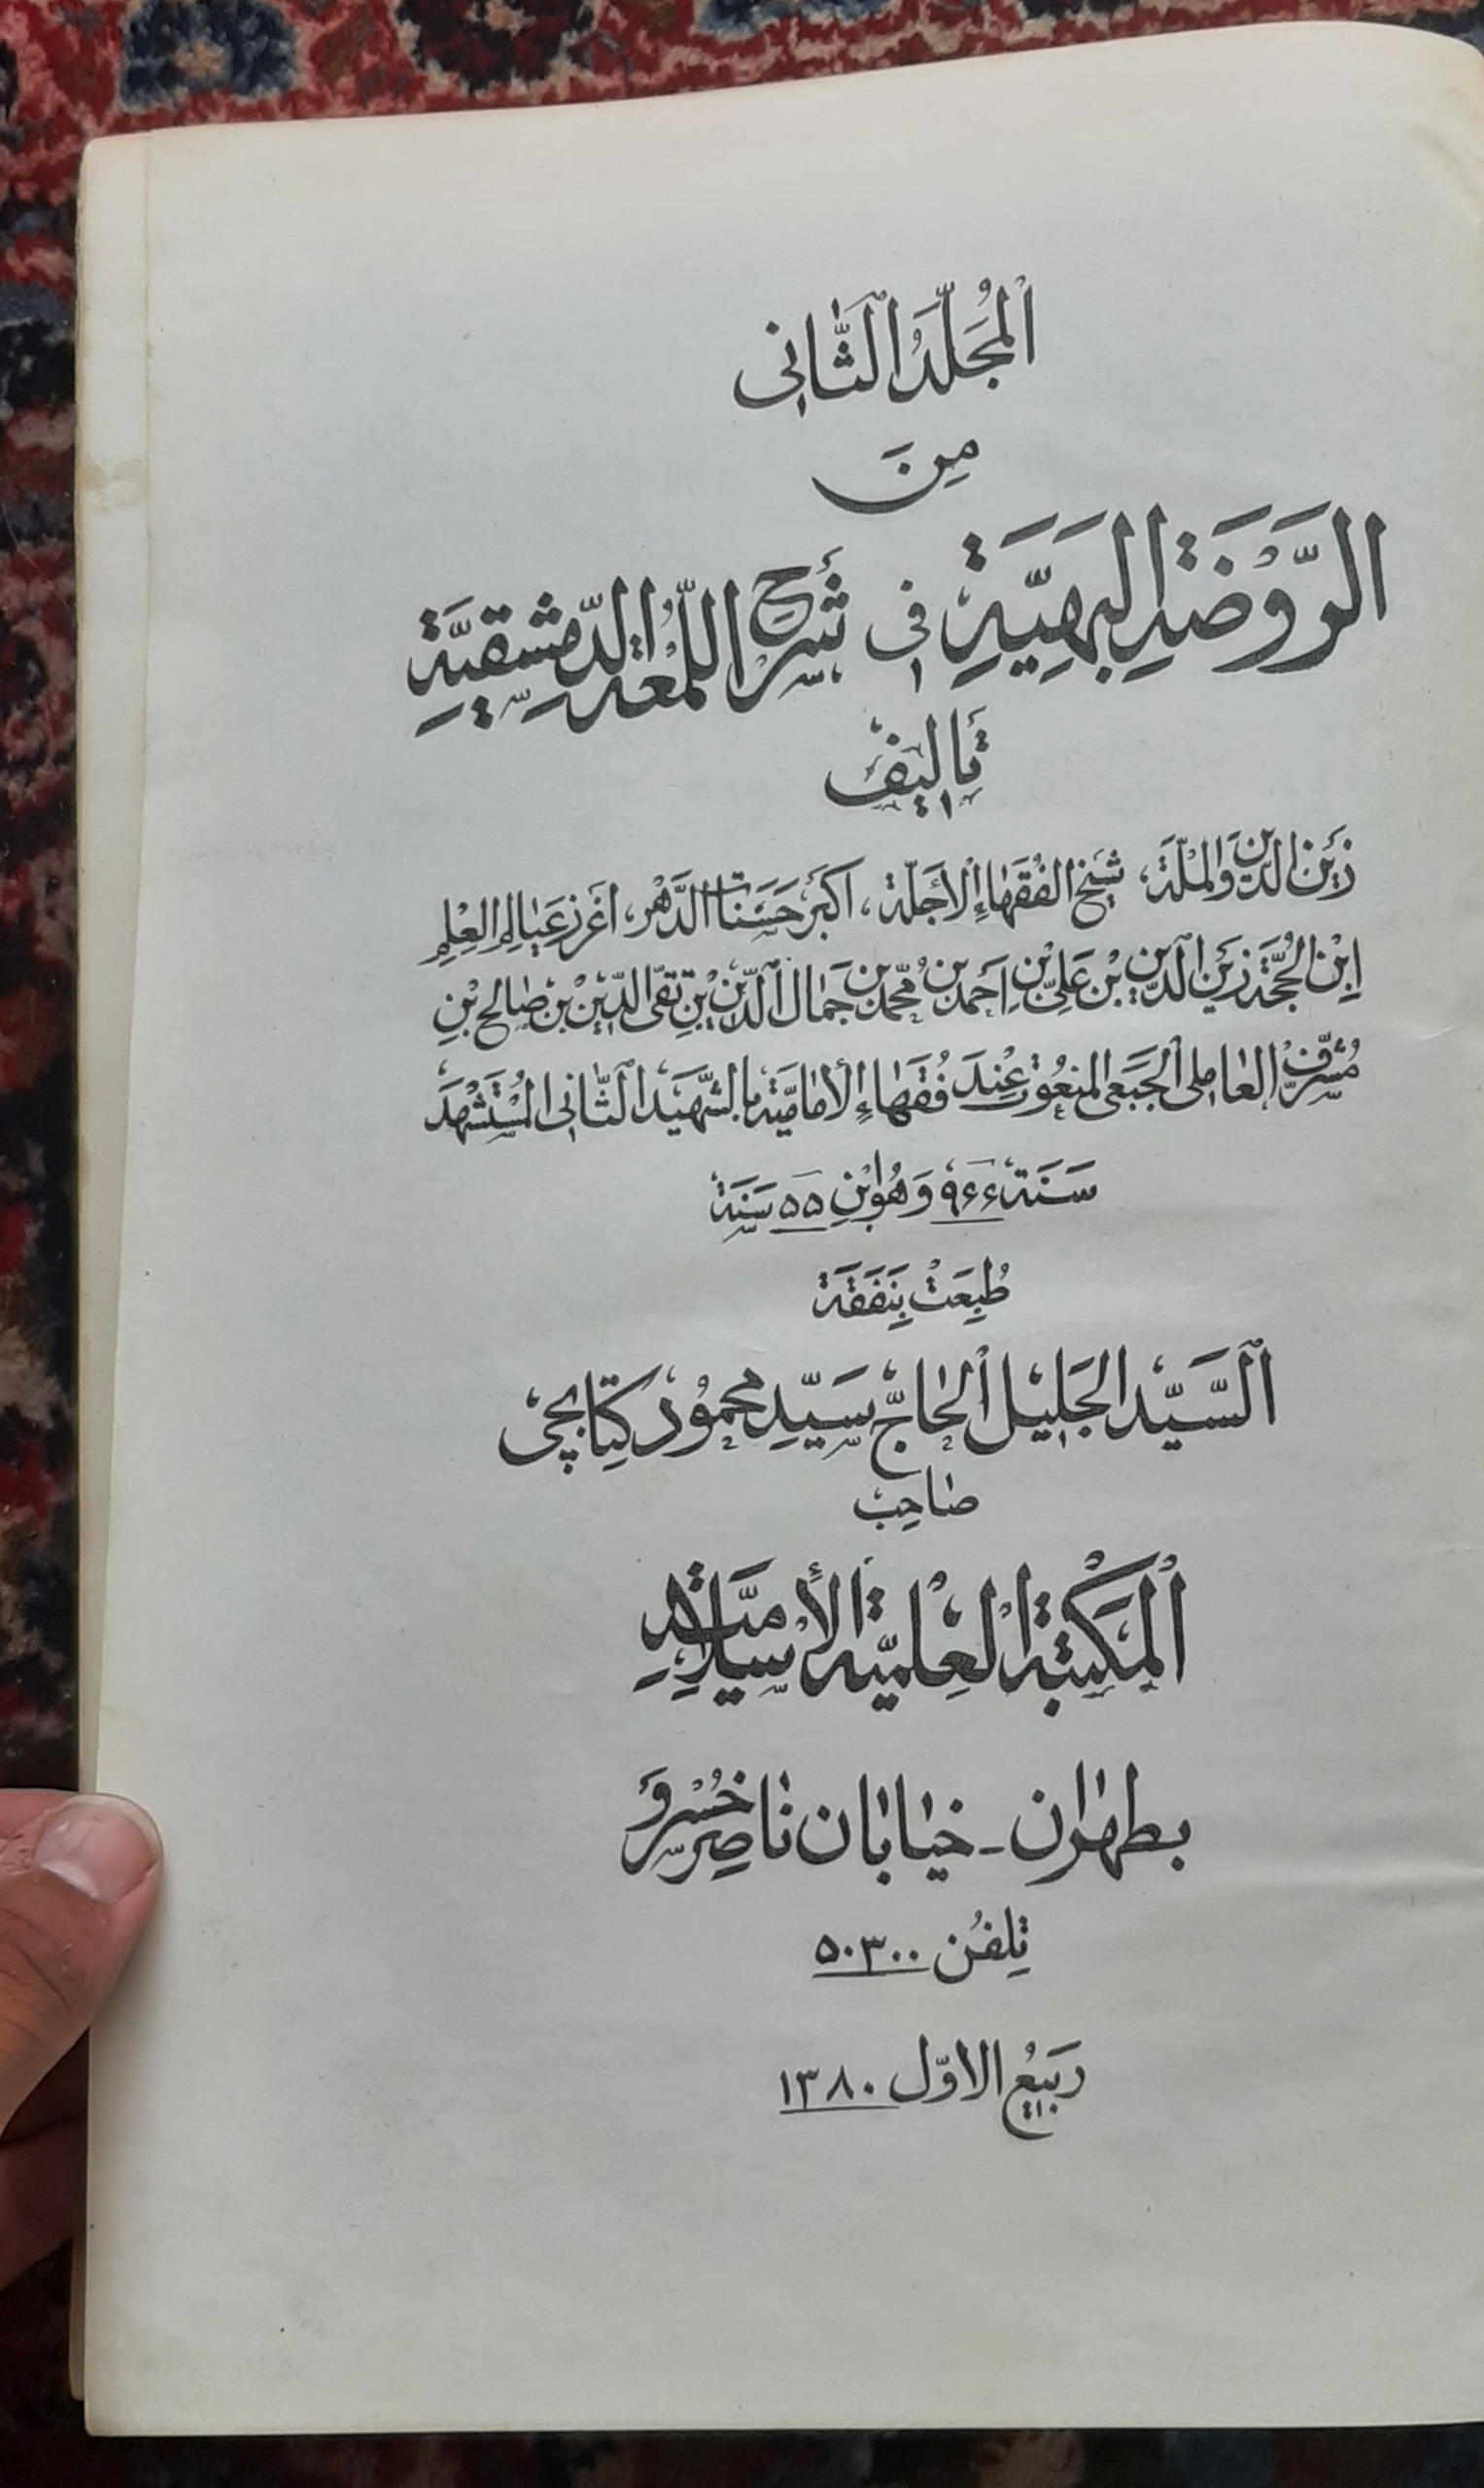 اَلْمُجَلَّدُ الثّانى
مِنَ
الرَّوْضَةِ البَهِيَّةِ فى شَرْحِ اللُّمْعَةِ الدِّمَشْقِيَّةِ
تَأليفُ
زَيْنِ الدّينِ وَالمِلَّةِ، شَيْخِ الفُقَهاءِ الأَجِلَّةِ، اَكْبَرِ حَسَناتِ الدَّهْرِ، اَغْزَرِ عَيالِمِ العِلْمِ
اِبْنِ الحُجَّةِ زَيْنِ الدّينِ بْنِ عَلِىِّ بْنِ اَحْمَدَ بْنِ مُحَمَّدِ بْنِ جَمالِ الدّينِ بْنِ تَقِىِّ الدّينِ بْنِ صالِحِ بْنِ
مُشَرَّفِ العامِلى الجُبَعى المَنعُوتِ عِنْدَ فُقَهاءِ الأمامِيَّةِ بِالشَّهيدِ الثّانى المُسْتَشْهَدِ
سَنَةَ ٩٦٤ وَهُوَ ابْنُ ۵۵ سَنَةً
طُبِعَتْ بِنَفَقَةِ
اَلسَّيِّدِ الجَليلِ اَلحاجِّ سَيِّدِ مَحمُودِ كِتابچى
صاحِبِ
اَلْمَكْتَبَةِ الْعِلْمِيَّةِ الأِسْلامِيَّةِ
بطهران - خيابان ناصِرخُسْرَو
تِلِفُن ۵۰۳۰۰
رَبيعُ الاوّل ۱۳۸۰